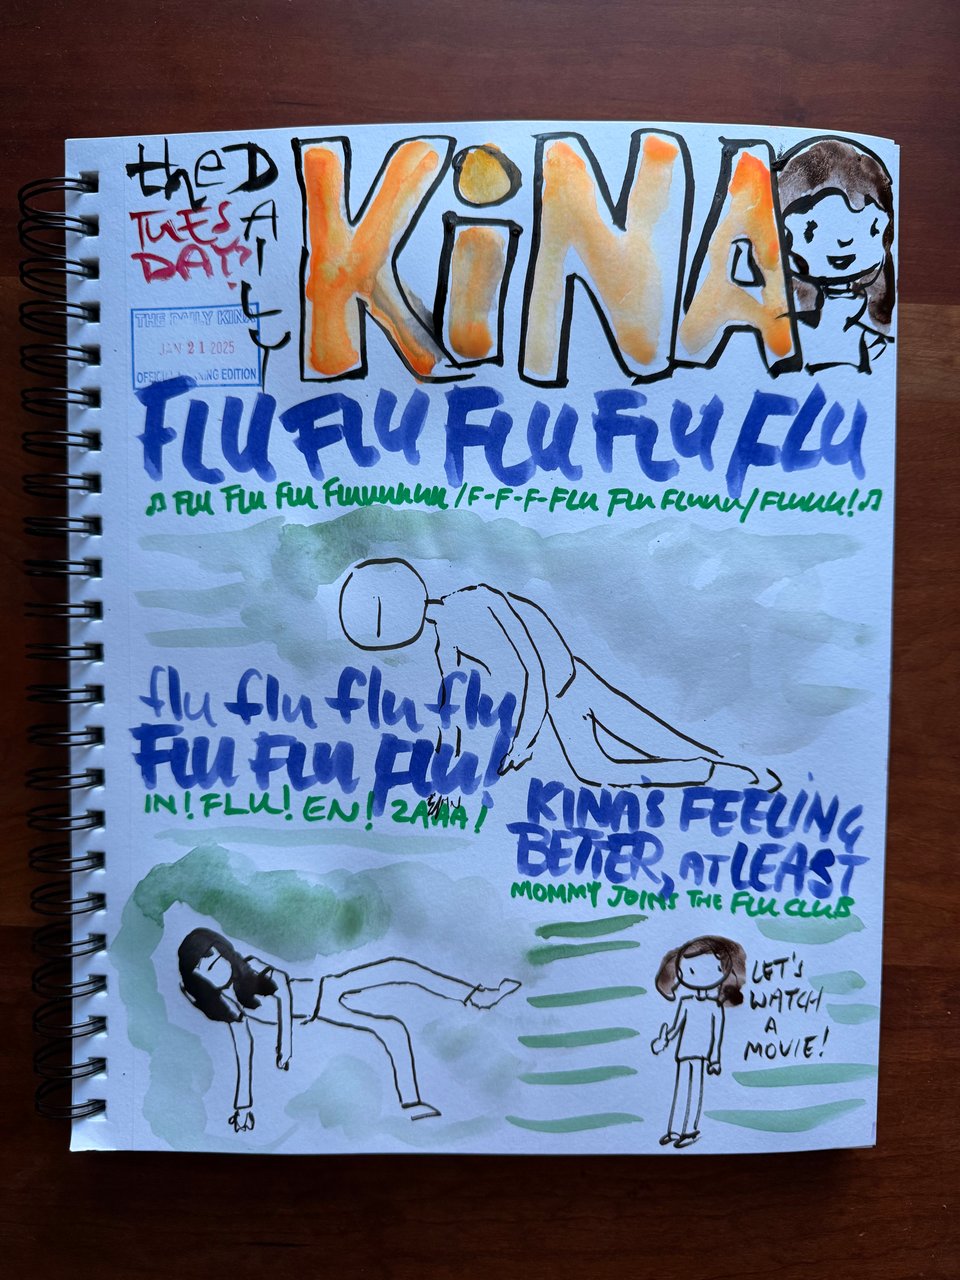 the DAILY
KiNA
TUESDAY!
THE DAILY KINA
JAN 21 2025
OFFICIAL MORNING EDITION
FLU FLU FLU FLU FLU
♫ FLU FLU FLU FLUUUUUUU / F-F-F-FLU FLU FLUUUU / FLUUUU! ♫
flu flu flu flu
FLU FLU FLU!
IN! FLU! EN! ZAAA!
KINA'S FEELING
BETTER, AT LEAST
MOMMY JOINS THE FLU CLUB
LET'S
WATCH
A
MOVIE!